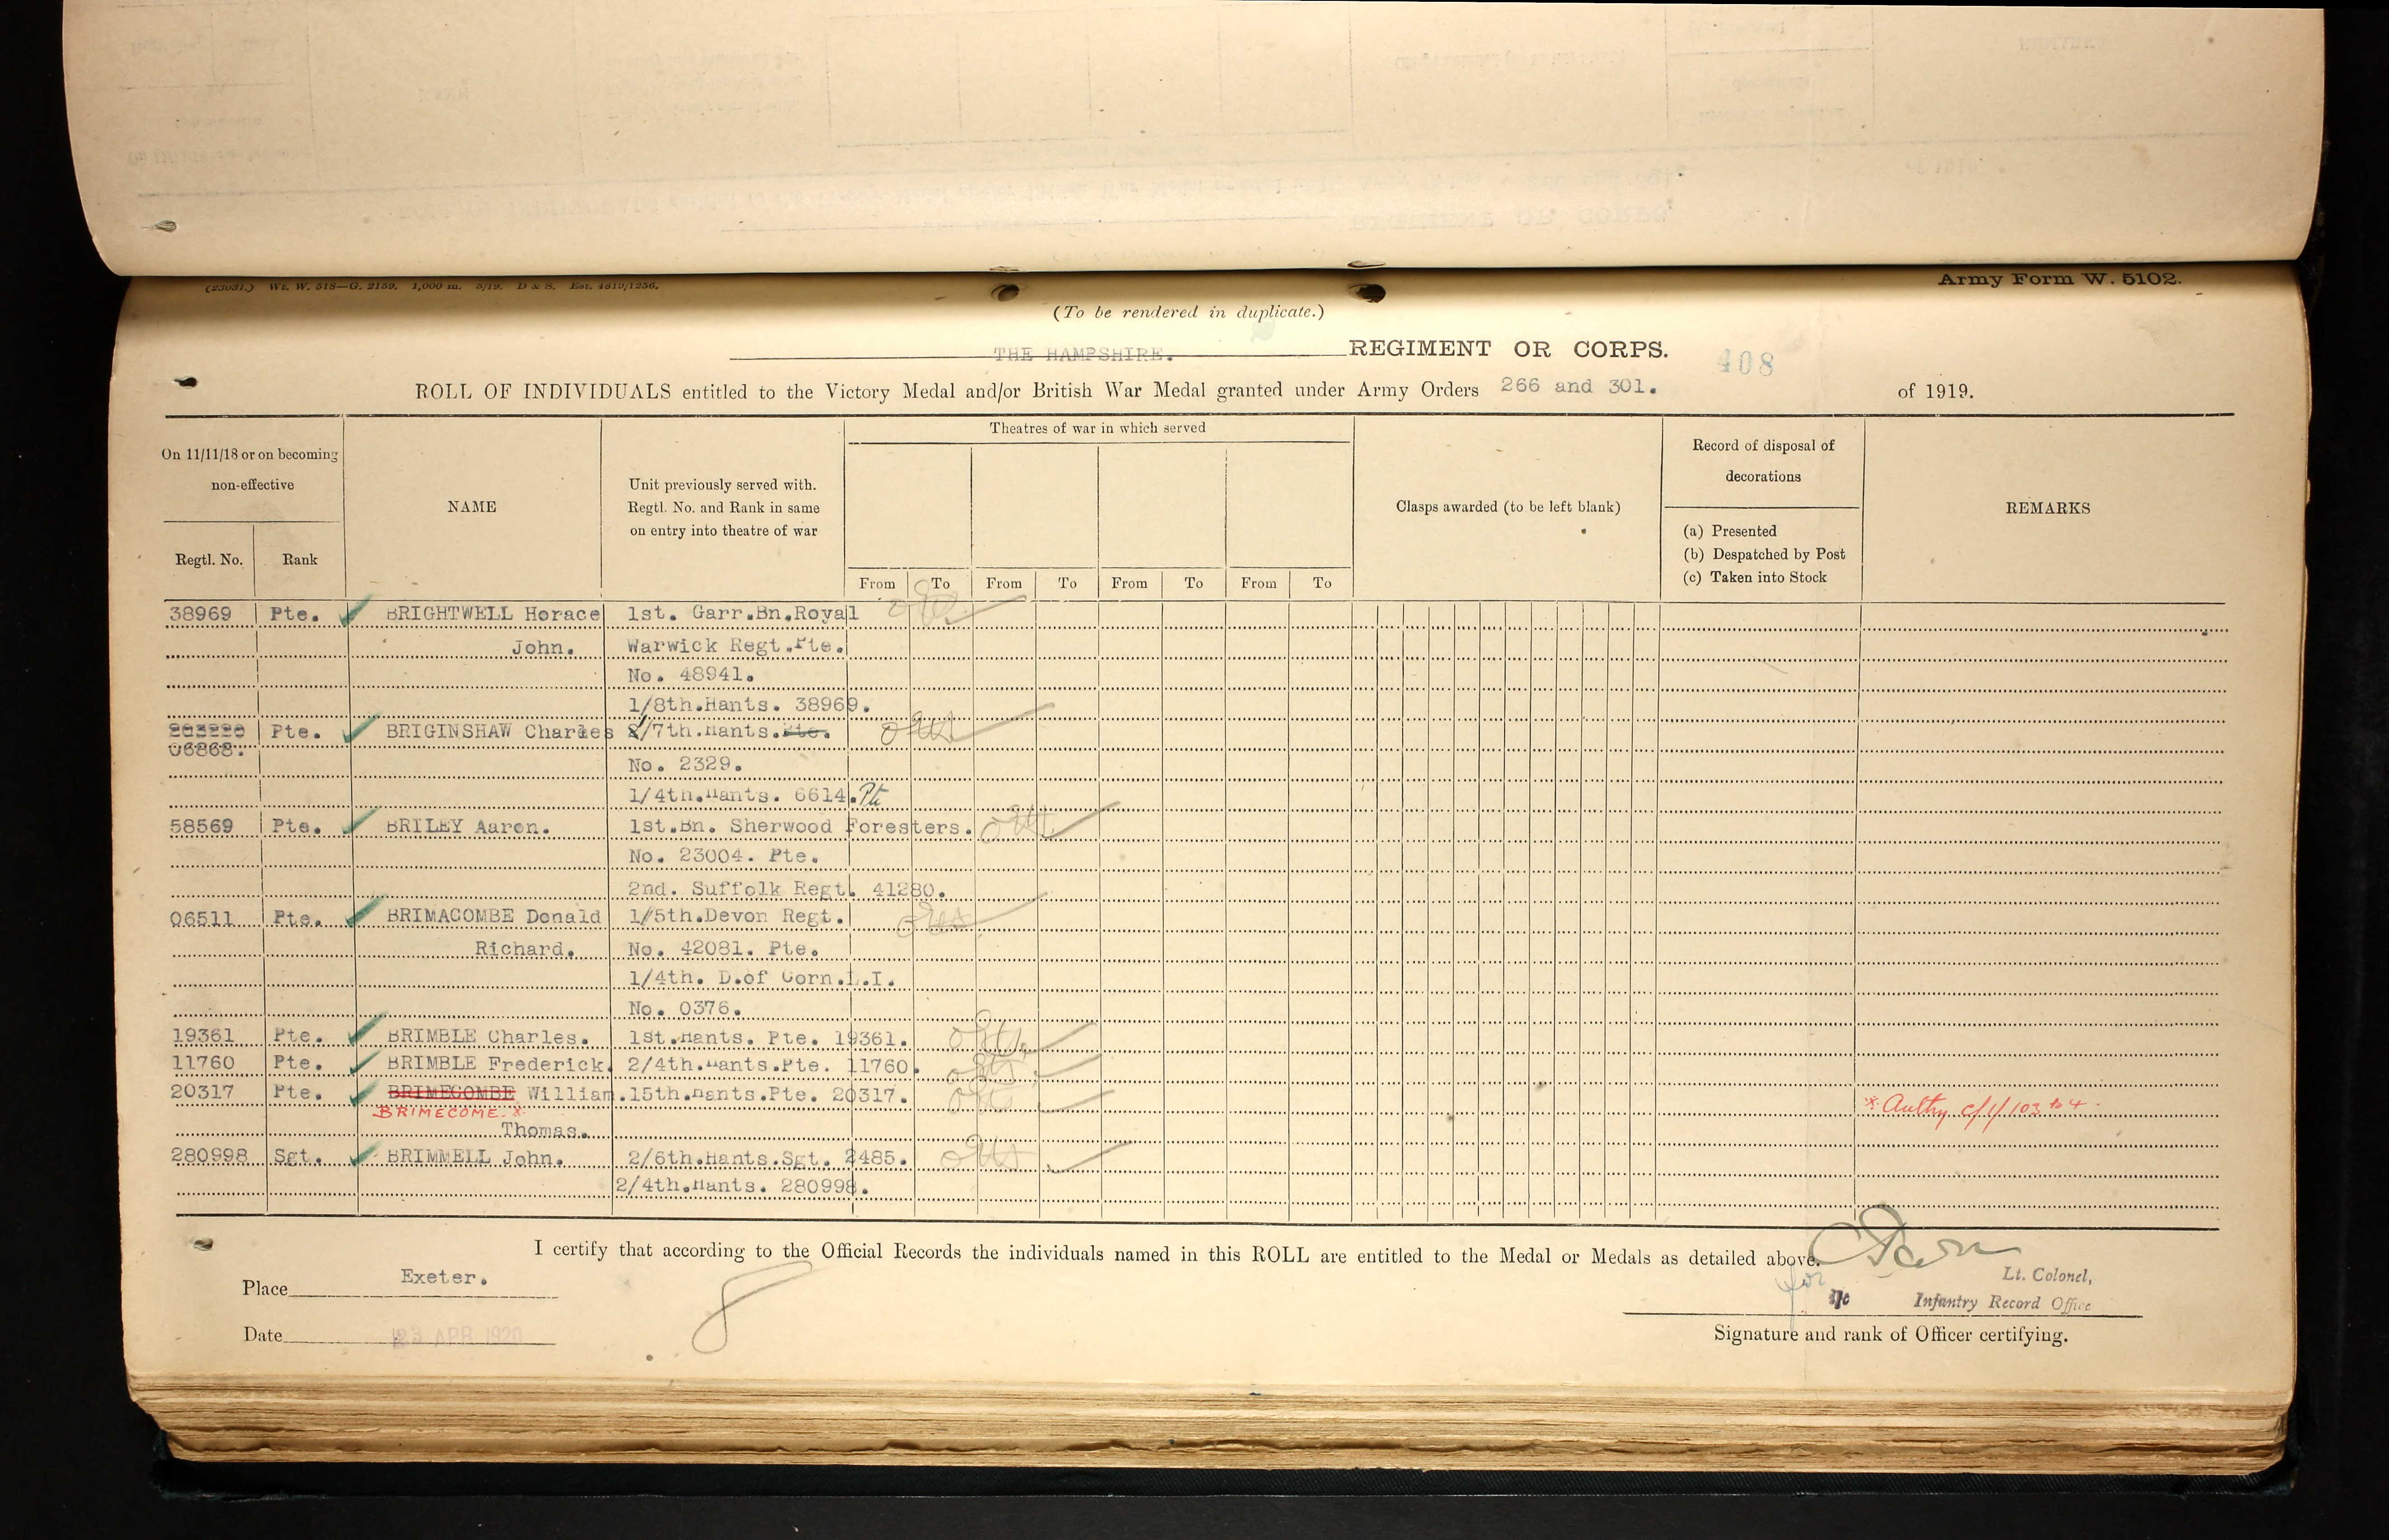 (23031.) Wt. W. 518—G. 2159. 1,000 m. 5/19. D & S. Est. 4819/1256.
Army Form W. 5102.
(To be rendered in duplicate.)
THE HAMPSHIRE. REGIMENT OR CORPS.
408
ROLL OF INDIVIDUALS entitled to the Victory Medal and/or British War Medal granted under Army Orders 266 and 301. of 1919.
On 11/11/18 or on becoming non-effective
Regtl. No.
Rank
NAME
Unit previously served with.
Regtl. No. and Rank in same
on entry into theatre of war
Theatres of war in which served
From To From To From To From To
Clasps awarded (to be left blank)
Record of disposal of
decorations
(a) Presented
(b) Despatched by Post
(c) Taken into Stock
REMARKS
38969 Pte. BRIGHTWELL Horace 1st. Garr.Bn.Royal
John. Warwick Regt.Pte.
No. 48941.
1/8th.Hants. 38969.
Pte. BRIGINSHAW Charles /7th.Hants.Pte.
06868.
No. 2329.
1/4th.Hants. 6614. Pte
58569 Pte. BRILEY Aaron. 1st.Bn. Sherwood Foresters.
No. 23004. Pte.
2nd. Suffolk Regt. 41280.
06511 Pte. BRIMACOMBE Donald 1/5th.Devon Regt.
Richard. No. 42081. Pte.
1/4th. D.of Corn.L.I.
No. 0376.
19361 Pte. BRIMBLE Charles. 1st.Hants. Pte. 19361.
11760 Pte. BRIMBLE Frederick. 2/4th.Hants.Pte. 11760.
20317 Pte. BRIMECOMBE William. 15th.Hants.Pte. 20317.
BRIMECOME *
* Authy. c/1/103
Thomas.
280998 Sgt. BRIMMELL John. 2/6th.Hants.Sgt. 2485.
2/4th.Hants. 280998.
I certify that according to the Official Records the individuals named in this ROLL are entitled to the Medal or Medals as detailed above.
Place Exeter.
for
Lt. Colonel,
i/c Infantry Record Office
Date 23 APR 1920
Signature and rank of Officer certifying.
8